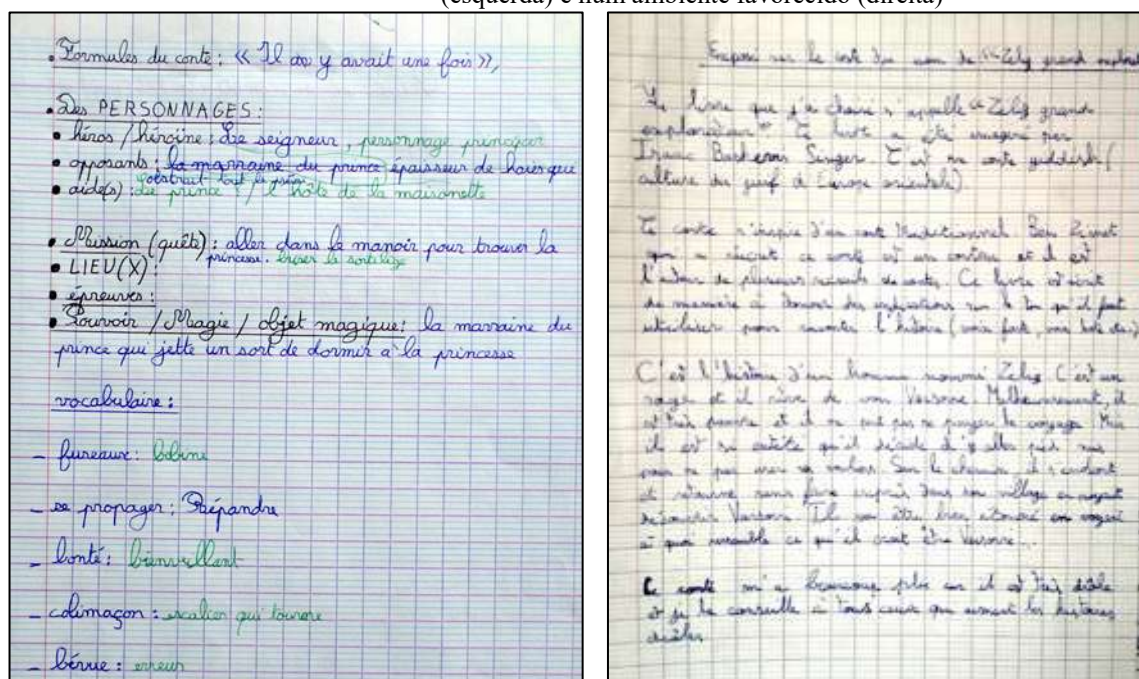 (esquerda) e num ambiente favorecido (direita)
. Formules du conte : « Il y avait une fois »,
. Des PERSONNAGES :
• héros / héroïne : Le seigneur, personnage principal
• opposants : la marraine du prince épaisseur de haies que
obstruait tout le
• aide(s) : le prince / l'hôte de la maisonnette
• Mission (quête) : aller dans le manoir pour trouver la
princesse. briser le sortilège
• LIEU(X) :
• épreuves :
• Pouvoir / Magie / objet magique : la marraine du
prince qui jette un sort de dormir à la princesse
vocabulaire :
- fureaux : bobine
- se propager : Répandre
- bonté : bienveillant
- colimaçon : escalier qui tourne
- bévue : erreur
Exposé sur le conte du nom de "Zelig grand
Le livre que j'ai choisi s'appelle "Zelig grand
explorateur" Ce livre a été imaginé par
Isaac Bashevis Singer C'est un conte yiddish (
culture du juif d'Europe orientale)
Ce conte s'inspire d'un conte traditionnel Ben Zimet
qui a ce conte est un conteur et il est
l'auteur de plusieurs recueils de contes. Ce livre est écrit
de manière à donner des explications sur le ton qu'il faut
utiliser pour raconter l'histoire (voix forte, voix
C'est l'histoire d'un homme nommé Zelig C'est un
sage et il rêve de voir Varsovie Malheureusement, il
est très pauvre et il ne peut pas se payer le voyage Mais
il est si entêté qu'il décide d'y aller pieds nus
pour ne pas user ses Sur le chemin il s'endort
et retourne sans faire exprès dans son village en croyant
Varsovie Il va être bien étonné en voyant
à quoi ressemble ce qu'il croit être Varsovie...
Ce conte m'a beaucoup plu car il est très drôle
et je le conseille à tous ceux qui aiment les histoires
drôles